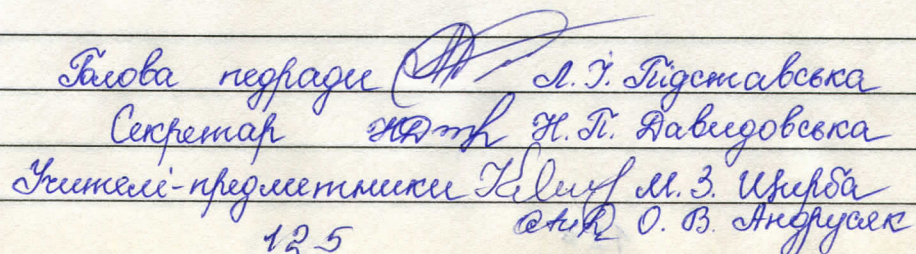 Голова педради Л. І. Підставська
Секретар Н. П. Давидовська
Учителі-предметники М. З. Щирба
О. В. Андрусяк
125